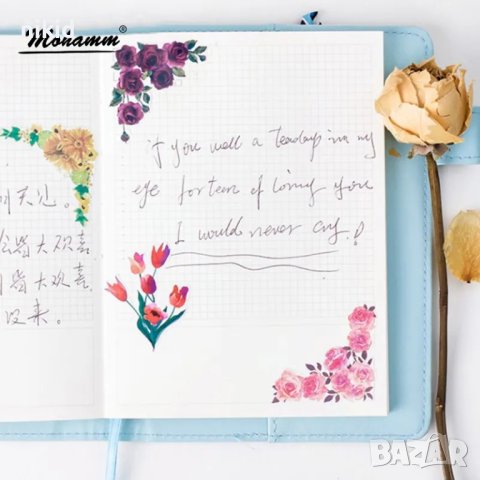 nikid
Monamm®
if you well a teardrop in my
eye for tear of losing you
I would never cry!
天
会皆大欢喜
皆大欢喜
没来。
BAZAR